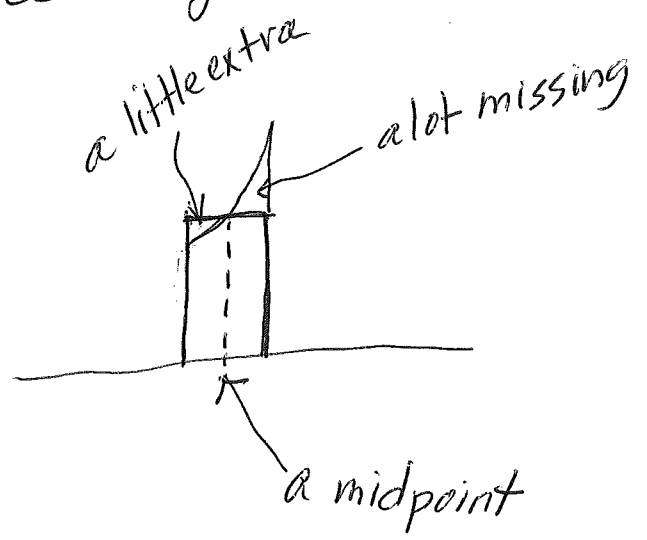 a little extra
a lot missing
a midpoint